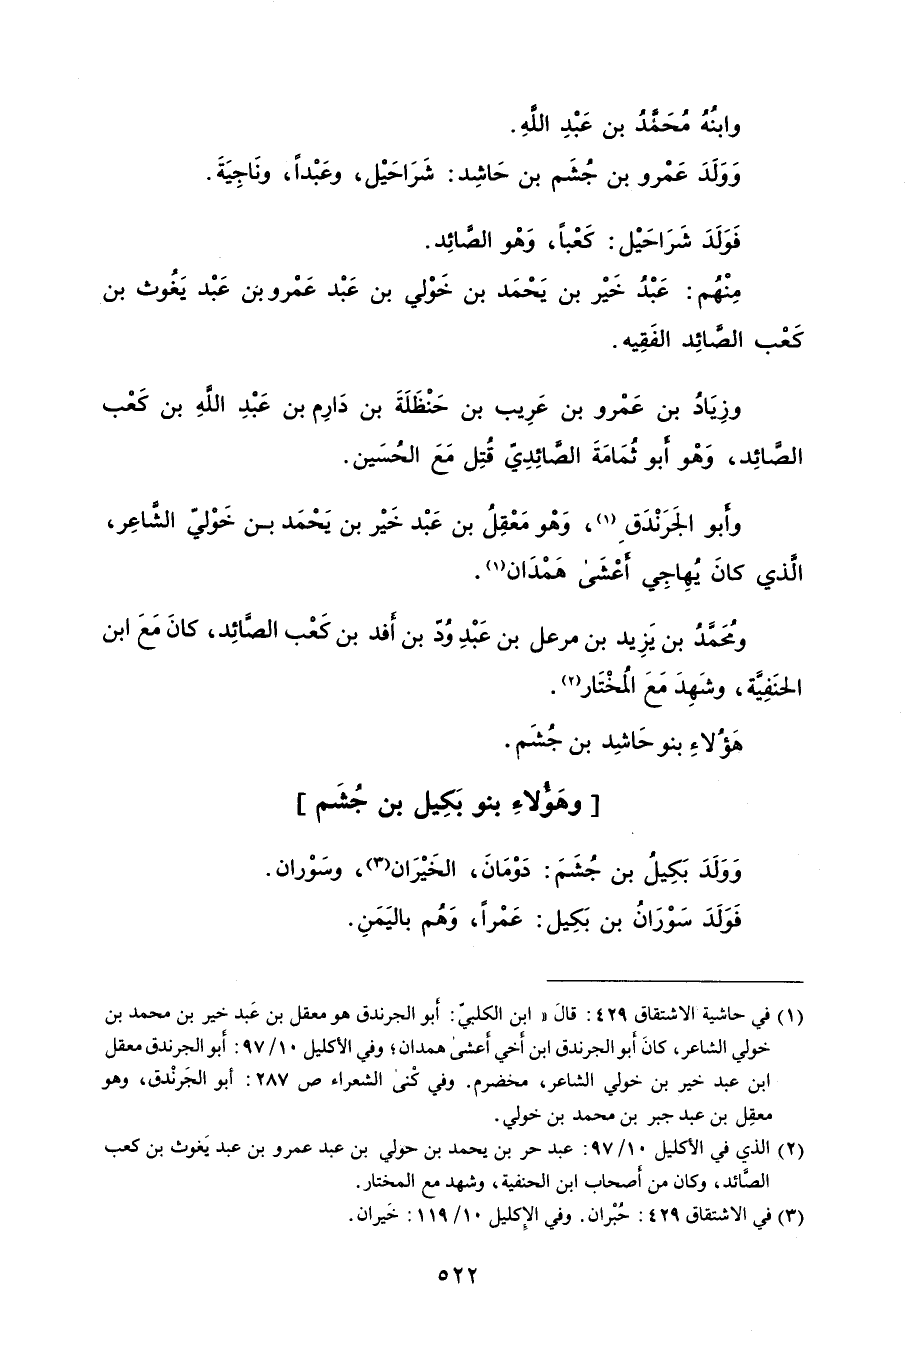 وابنُهُ مُحَمَّدُ بن عَبْدِ اللَّهِ.
وَوَلَدَ عَمْرو بن جُشَم بن حَاشِد: شَرَاحَيْل، وعَبْداً، ونَاجِيَةَ.
فَوَلَدَ شَرَاحَيْل: كَعْباً، وَهْو الصَّائِد.
مِنْهُم: عَبْدُ خَيْر بن يَحْمَد بن خَوْلي بن عَبْد عَمْرو بن عَبْد يَغُوث بن
كَعْب الصَّائِد الفَقِيه.
وزِيَادُ بن عَمْرو بن عَرِيب بن حَنْظَلَةَ بن دَارِم بن عَبْدِ اللَّهِ بن كَعْب
الصَّائِد، وَهْو أَبو ثُمَامَةَ الصَّائِدِيّ قُتِل مَعَ الحُسَين.
وأَبو الجَرَنْدَق (١)، وَهْو مَعْقِلُ بن عَبْد خَيْر بن يَحْمَد بـن خَوْليّ الشَّاعِر،
الَّذي كانَ يُهاجِي أَعْشَىٰ هَمْدَان(١).
ومُحَمَّدُ بن يَزِيد بن مرعل بن عَبْدِ وُدّ بن أَفد بن كَعْب الصَّائِد، كانَ مَعَ ابن
الحَنَفِيَّة، وشَهِدَ مَعَ المُخْتَار(٢).
هَؤُلاءِ بنو حَاشِد بن جُشَم.
[ وهَؤُلاءِ بنو بَكِيل بن جُشَم ]
وَوَلَدَ بَكِيلُ بن جُشَمَ: دَوْمَانَ، الخَيْرَان(٣)، وسَوْران.
فَوَلَدَ سَوْرَانُ بن بَكِيل: عَمْراً، وَهُم باليَمَنِ.
(١) في حاشية الاشتقاق ٤٢٩: قالَ « ابن الكلبيّ: أَبو الجرندق هو معقل بن عَبد خير بن محمد بن
خولي الشاعر، كانَ أَبو الجرندق ابن أَخي أَعشىٰ همدان؛ وفي الأكليل ١٠/ ٩٧: أَبو الجرندق معقل
ابن عبد خير بن خولي الشاعر، مخضرم. وفي كُنىٰ الشعراء ص ٢٨٧: أَبو الجَرنْدق، وهو
معقِل بن عبد جبر بن محمد بن خولي.
(٢) الذي في الأكليل ١٠/ ٩٧: عبد حر بن يحمد بن حولي بن عبد عمرو بن عبد يَغوث بن كعب
الصَّائد، وكان من أَصحاب ابن الحنفية، وشهد مع المختار.
(٣) في الاشتقاق ٤٢٩: حُبْران. وفي الإكليل ١٠/ ١١٩: خَيران.
٥٢٢